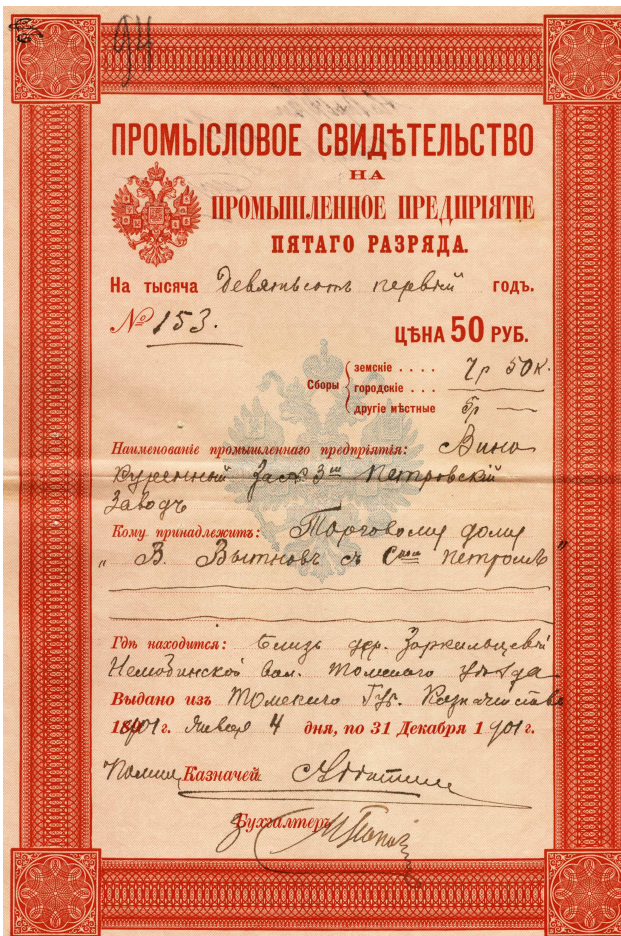 94
ПРОМЫСЛОВОЕ СВИДѢТЕЛЬСТВО
НА
ПРОМЫШЛЕННОЕ ПРЕДПРІЯТІЕ
ПЯТАГО РАЗРЯДА.
На тысяча Девятьсотъ первый годъ.
№ 153.
ЦѢНА 50 РУБ.
Сборы
земскіе . . . . 7р 50к.
городскіе . . .
другіе мѣстные 5р —
Наименованіе промышленнаго предпріятія: Вино
куренный Петровскій
Заводъ
Кому принадлежитъ: Торговому дому
„В. Вытновъ съ Петромъ"
Гдѣ находится: близь дер.
вол. Томскаго уѣзда
Выдано изъ Томскаго Губ. Казначейства
1901 г. Января 4 дня, по 31 Декабря 1901 г.
Казначей
Бухгалтеръ